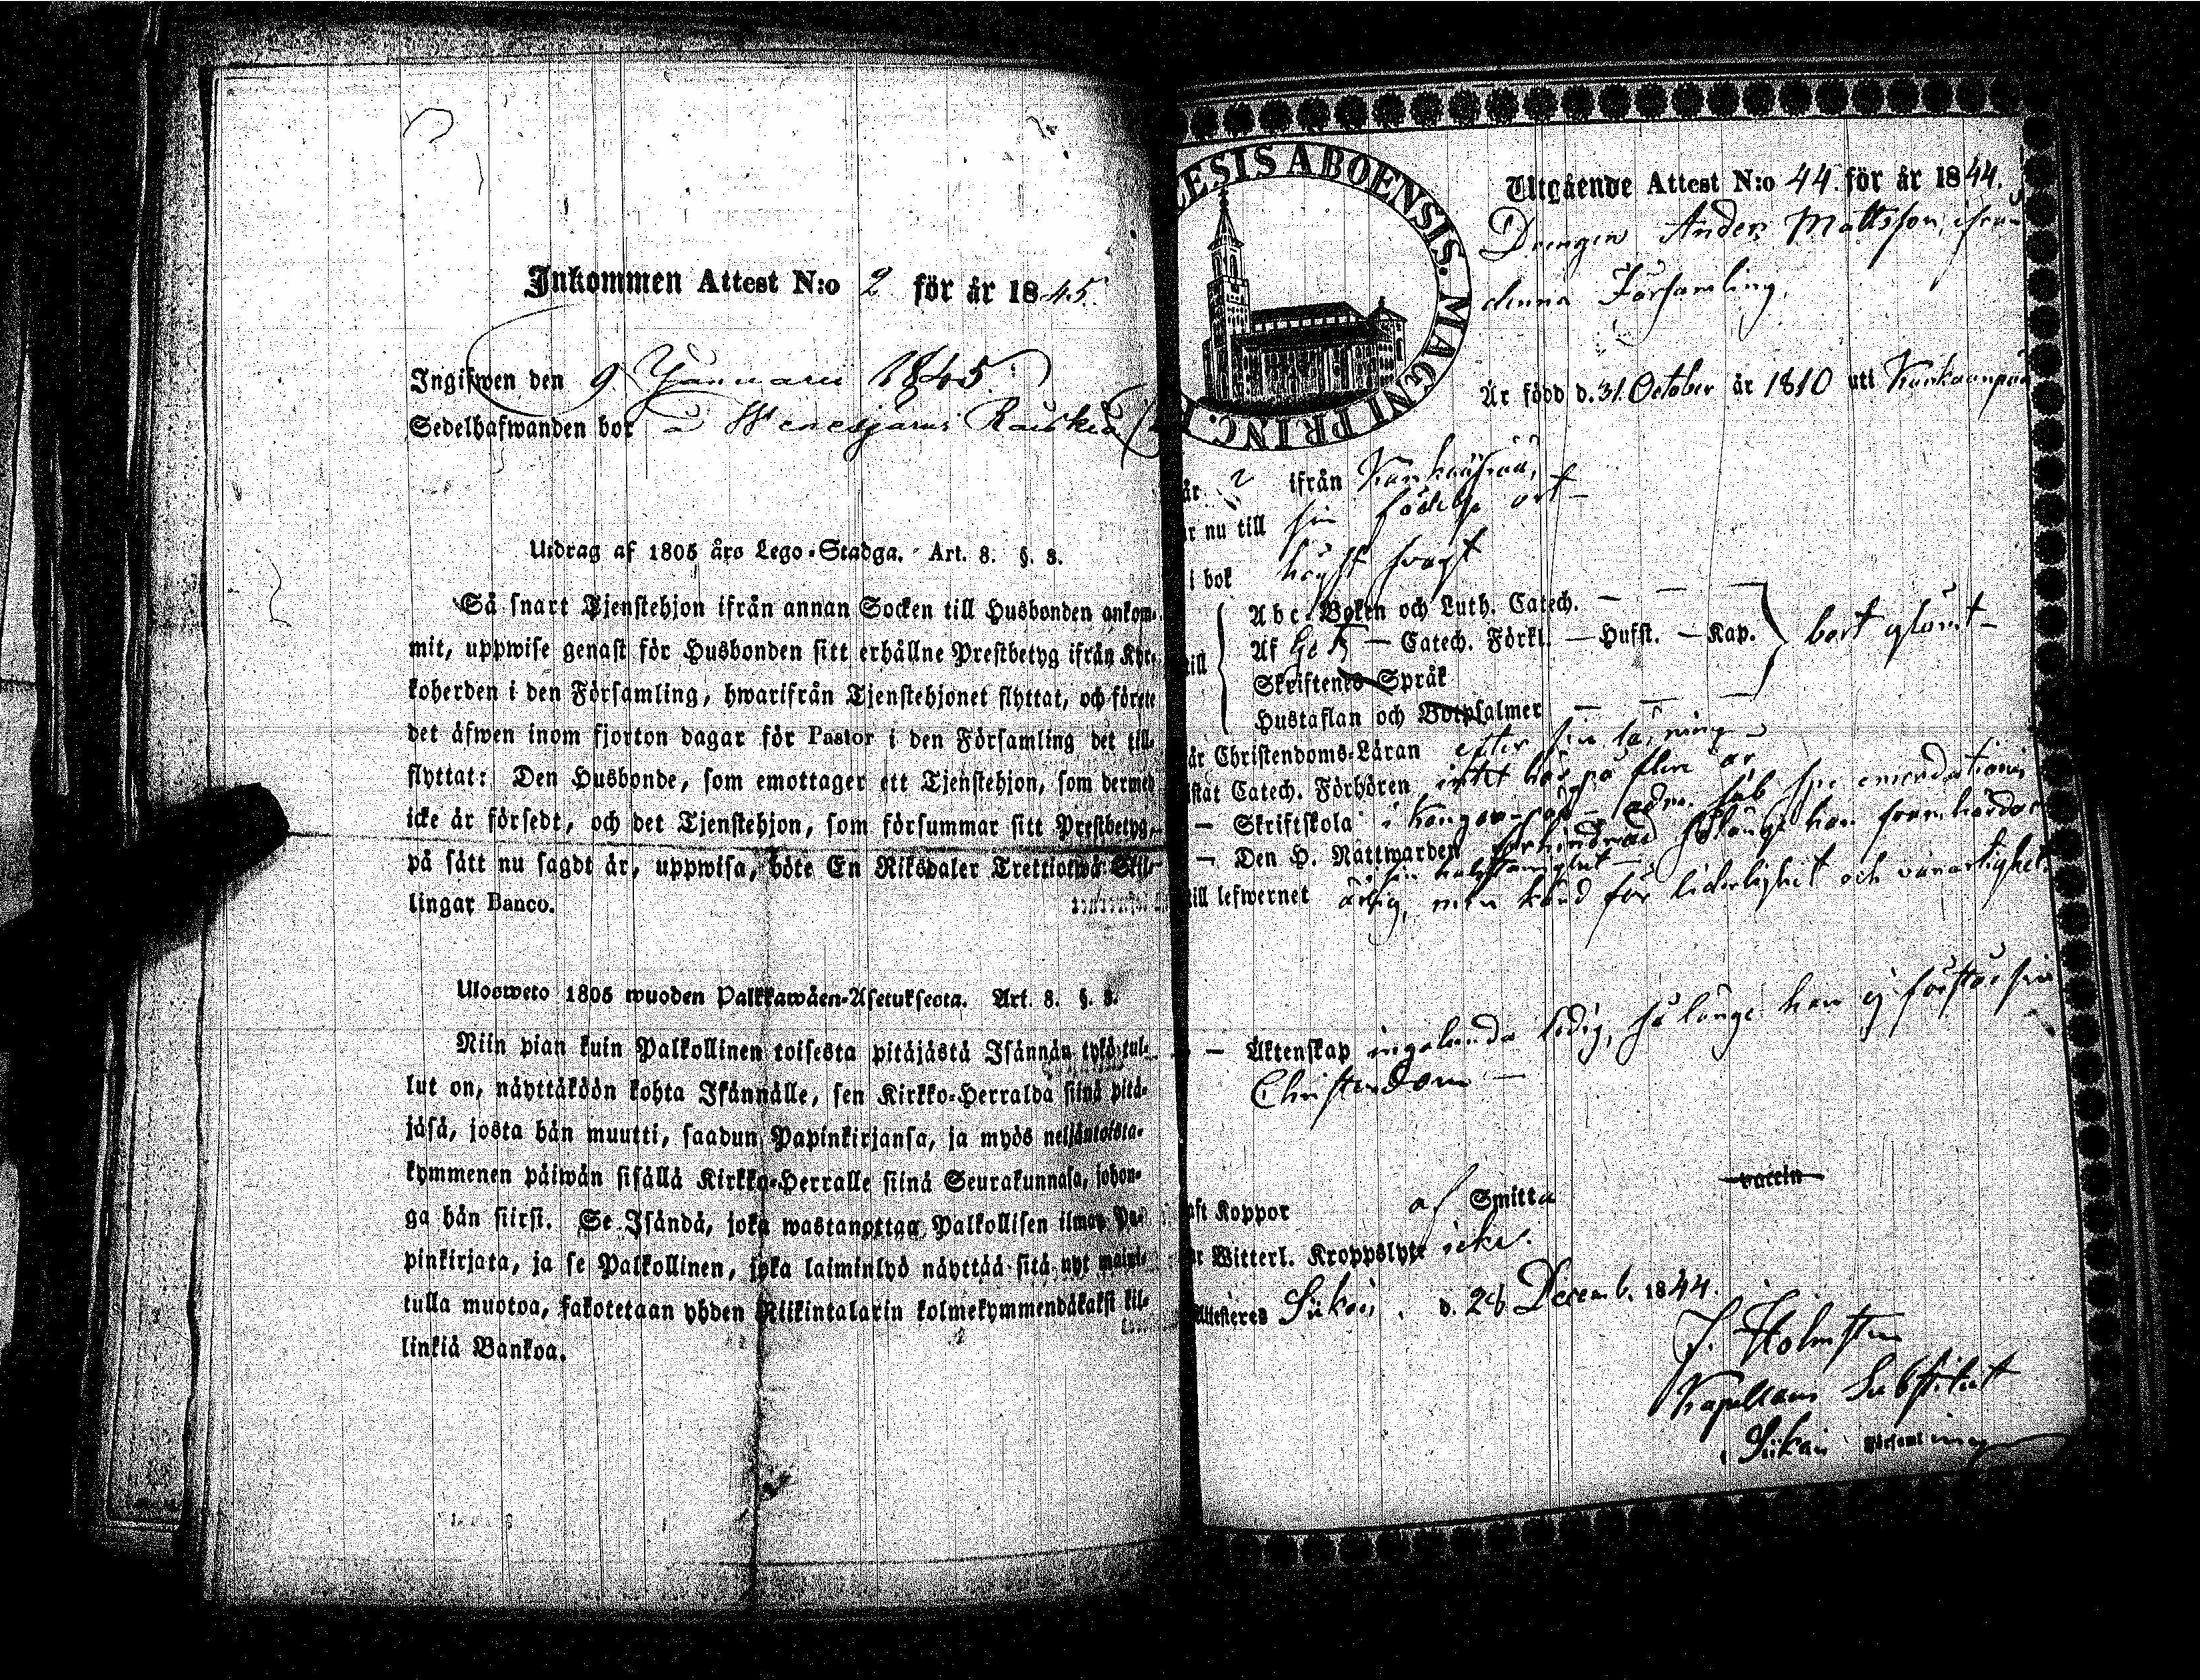 Inkommen Attest N:o 2 för år 1845.
Ingifwen den 9 Januarii 1845.
Sedelhafwanden bor å Wenesjärvi
Utdrag af 1805 års Lego-Stadga. Art. 8. §. 3.
Så snart Tjenstehjon ifrån annan Socken till Husbonden ankom-
mit, uppwise genast för Husbonden sitt erhållne Prestbetyg ifrån Kyr-
koherden i den Församling, hwarifrån Tjenstehjonet flyttat, och förete
det äfwen inom fjorton dagar för Pastor i den Församling det till-
flyttat: Den Husbonde, som emottager ett Tjenstehjon, som dermed
icke är försedt, och det Tjenstehjon, som försummar sitt Prestbetyg,
på sätt nu sagdt är, uppwisa, böte En Riksdaler Trettiotwå Skil-
lingar Banco.
Ulosweto 1805 wuoden Palkkawäen-Asetuksesta. Art. 8. §. 3.
Niin pian kuin Palkollinen toisesta pitäjästä Isännän tykö tul-
lut on, näyttäköön kohta Isännälle, sen Kirkko-Herralda siinä pitä-
jäsä, josta hän muutti, saadun Papinkirjansa, ja myös neljäntoista-
kymmenen päiwän sisällä Kirkko-Herralle siinä Seurakunnasa, johon-
ga hän siirsi. Se Isändä, joka wastanottaa Palkollisen ilman Pa-
pinkirjata, ja se Palkollinen, joka laiminlyö näyttää sitä nyt maini-
tulla muotoa, sakotetaan yhden Riikintalarin kolmekymmendäkaksi kil-
linkiä Bankoa.
ESIS ABOENSIS. MAGNI PRINC.
Utgående Attest N:o 44. för år 1844.
Drengen Anders Mattsson, ifrån
denna Församling,
Är född d. 31. October år 1810 uti Kankaanpää
år ifrån Kankaanpää,
r nu till sin födelse ort
i bok högst svagt
Abc-Boken och Luth. Catech.
Af Catech. Förkl. — Husft. — Kap. bort glömt
Skriftenes Språk
Hustaflan och Botpsalmer
år Christendoms-Läran efter sin läsning
istat Catech. Förhören intet här på flere år
— Skriftskola i adm. sub spe emendationis
— Den H. Nattwarden förhindrad så länge han framhärdar
i sin
till lefwernet ärlig, men känd för liderlighet och vanartighet.
— Äktenskap ingalunda ledig, så länge han ej förstår sin
Christendom —
aft Koppor af Smitta vaccin
r Witterl. Kroppslyte icke.
Attesteres Siikais, d. 28 Decemb. 1844.
J. Holmsten
Kapellans Substitut
i Siikais Församling